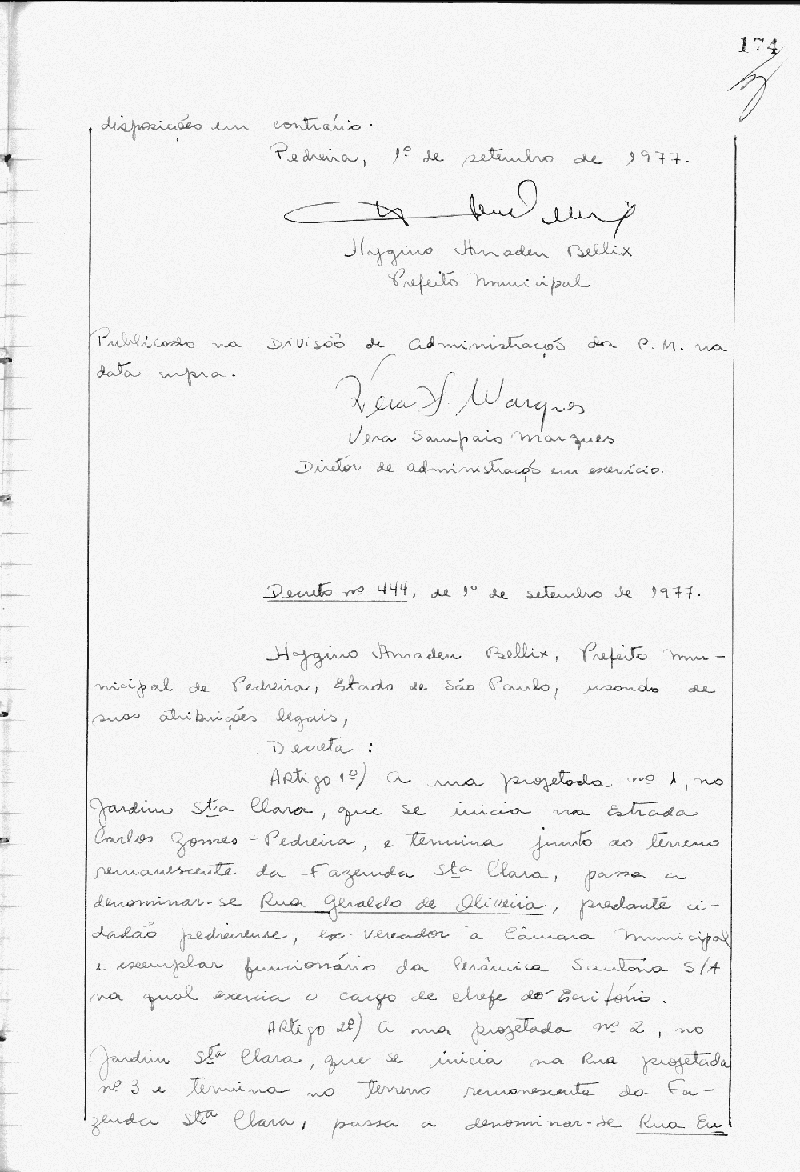 174
disposições em contrário.
Pedreira, 1º de setembro de 1977.
Hygino Amadeu Bellix
Prefeito Municipal
Publicado na Divisão de Administração da P.M. na
data supra.
Vera S. Marques
Vera Sampaio Marques
Diretor de administração em exercício.
Decreto nº 444, de 1º de setembro de 1977.
Hygino Amadeu Bellix, Prefeito Mu-
nicipal de Pedreira, Estado de São Paulo, usando de
suas atribuições legais,
Decreta:
Artigo 1º) A rua projetada nº 1, no
Jardim Sta Clara, que se inicia na Estrada
Carlos Gomes-Pedreira, e termina junto ao terreno
remanescente da Fazenda Sta Clara, passa a
denominar-se Rua Geraldo de Oliveira, prestante ci-
dadão pedreirense, ex-vereador à Câmara Municipal
e exemplar funcionário da Cerâmica S/A
na qual exercia o cargo de chefe do Escritório.
Artigo 2º) A rua projetada nº 2, no
Jardim Sta Clara, que se inicia na Rua projetada
nº 3 e termina no terreno remanescente da Fa-
zenda Sta Clara, passa a denominar-se Rua Eu